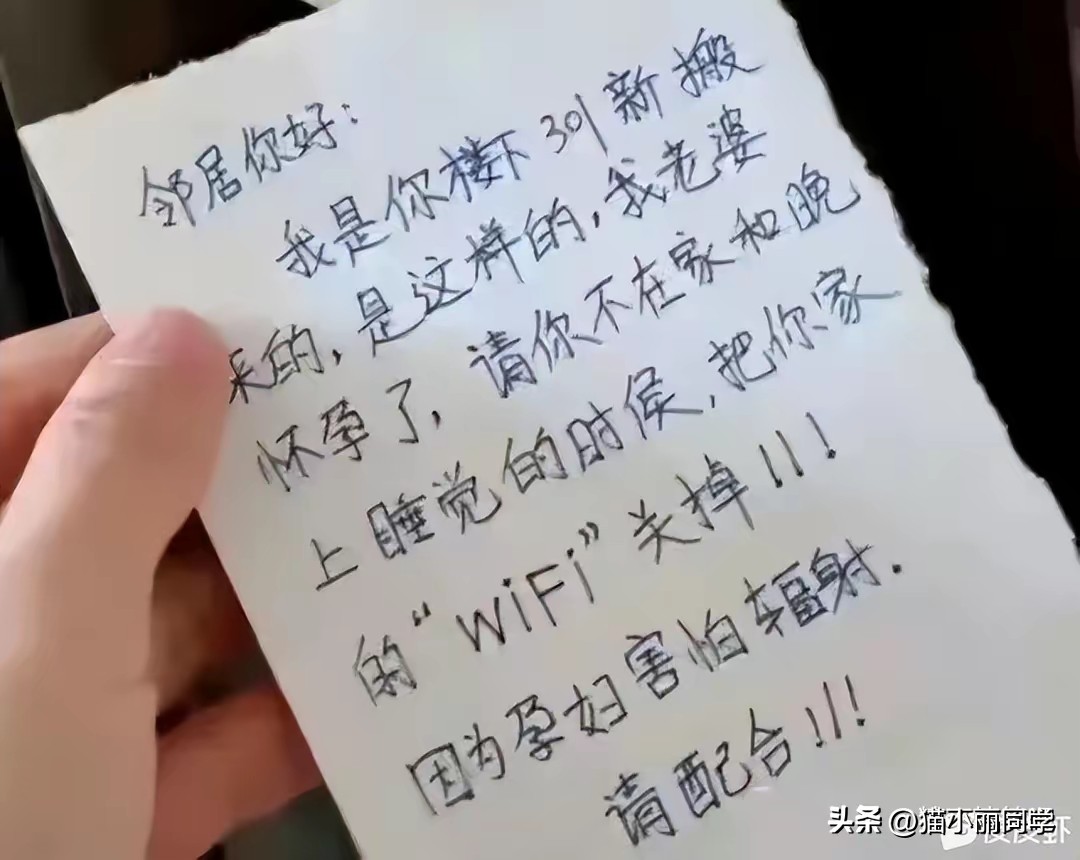 邻居你好：
我是你楼下301新搬
来的，是这样的，我老婆
怀孕了，请你不在家和晚
上睡觉的时侯，把你家
的“WiFi”关掉！！！
因为孕妇害怕辐射．
请配合！！！
头条 @猫小丽同学